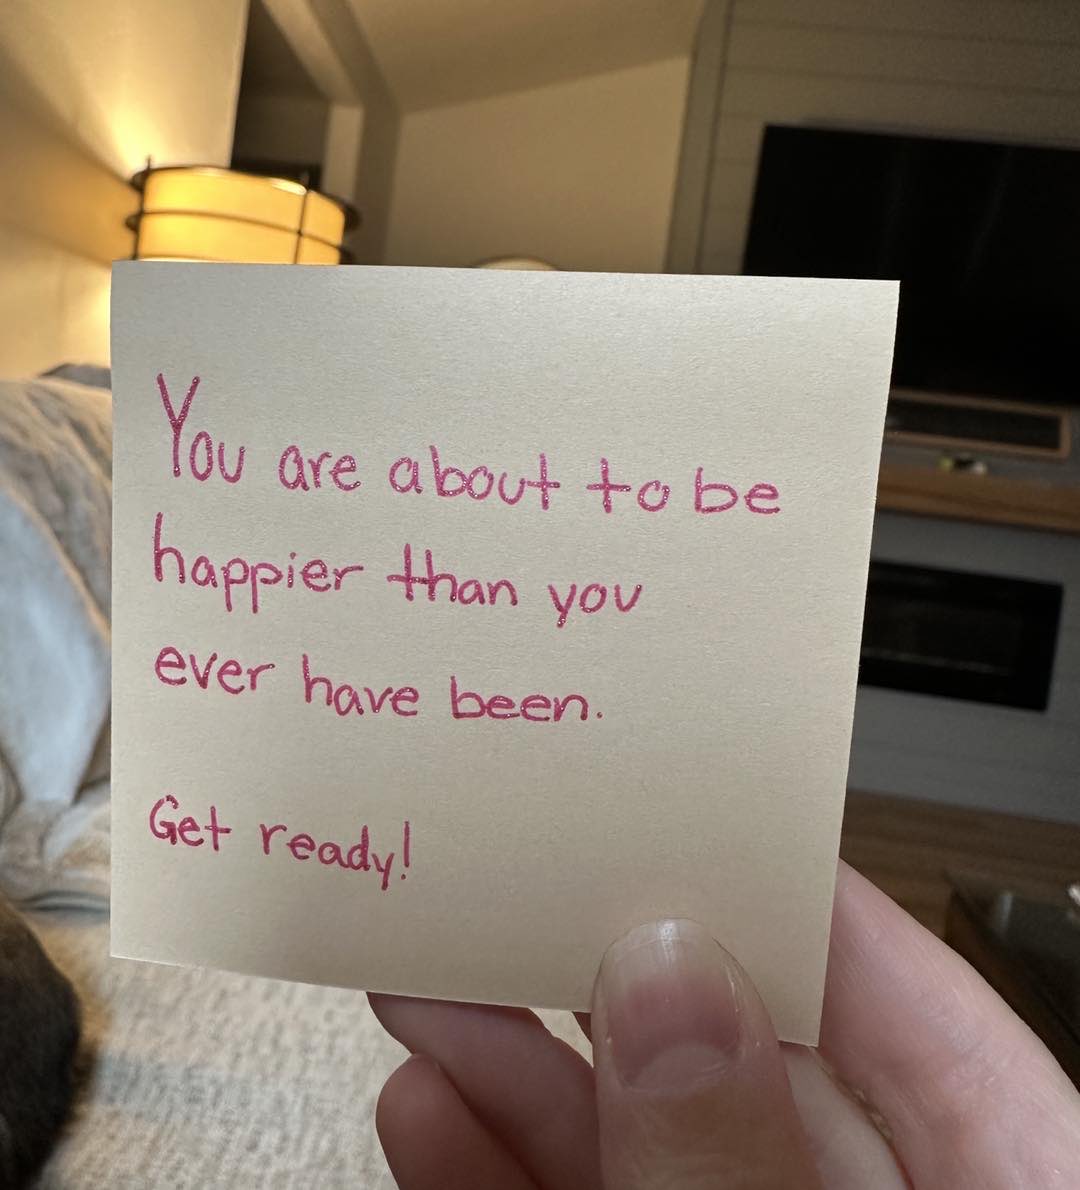 You are about to be
happier than you
ever have been.
Get ready!